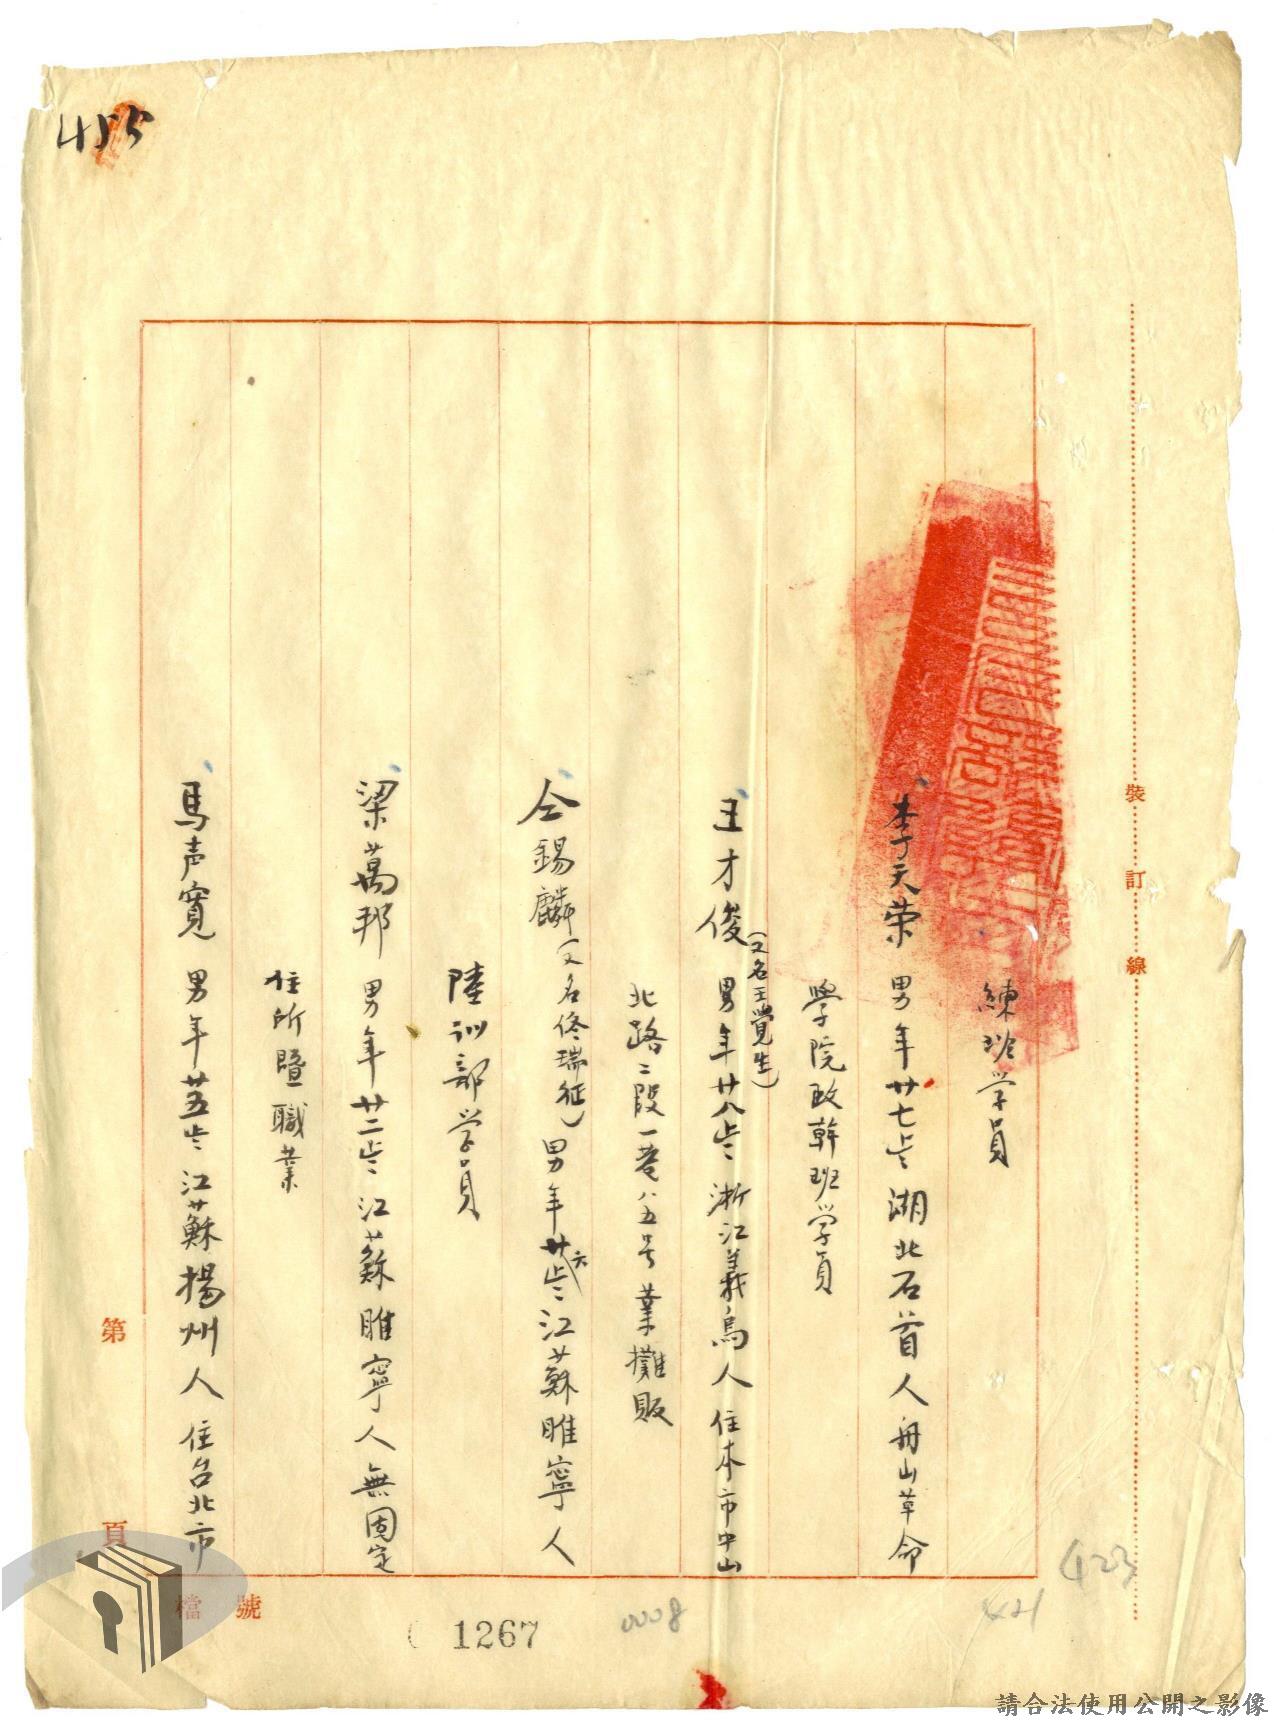 455
練班学員
李天荣 男年廿七歩 湖北石首人 舟山革命
學院政幹班学員
王才俊(又名王覺生) 男年廿八歩 浙江義烏人 住本市中山
北路二段一巷八五号 業攤販
仝錫麟(又名佟瑞征) 男年廿六歩 江蘇睢寧人
陸訓部学員
梁萬邦 男年廿二歩 江蘇睢寧人 無固定
住所暨職業
馬声寛 男年廿五歩 江蘇揚州人 住台北市
裝訂線
第 頁
檔號
1267
0008
421
423
請合法使用公開之影像